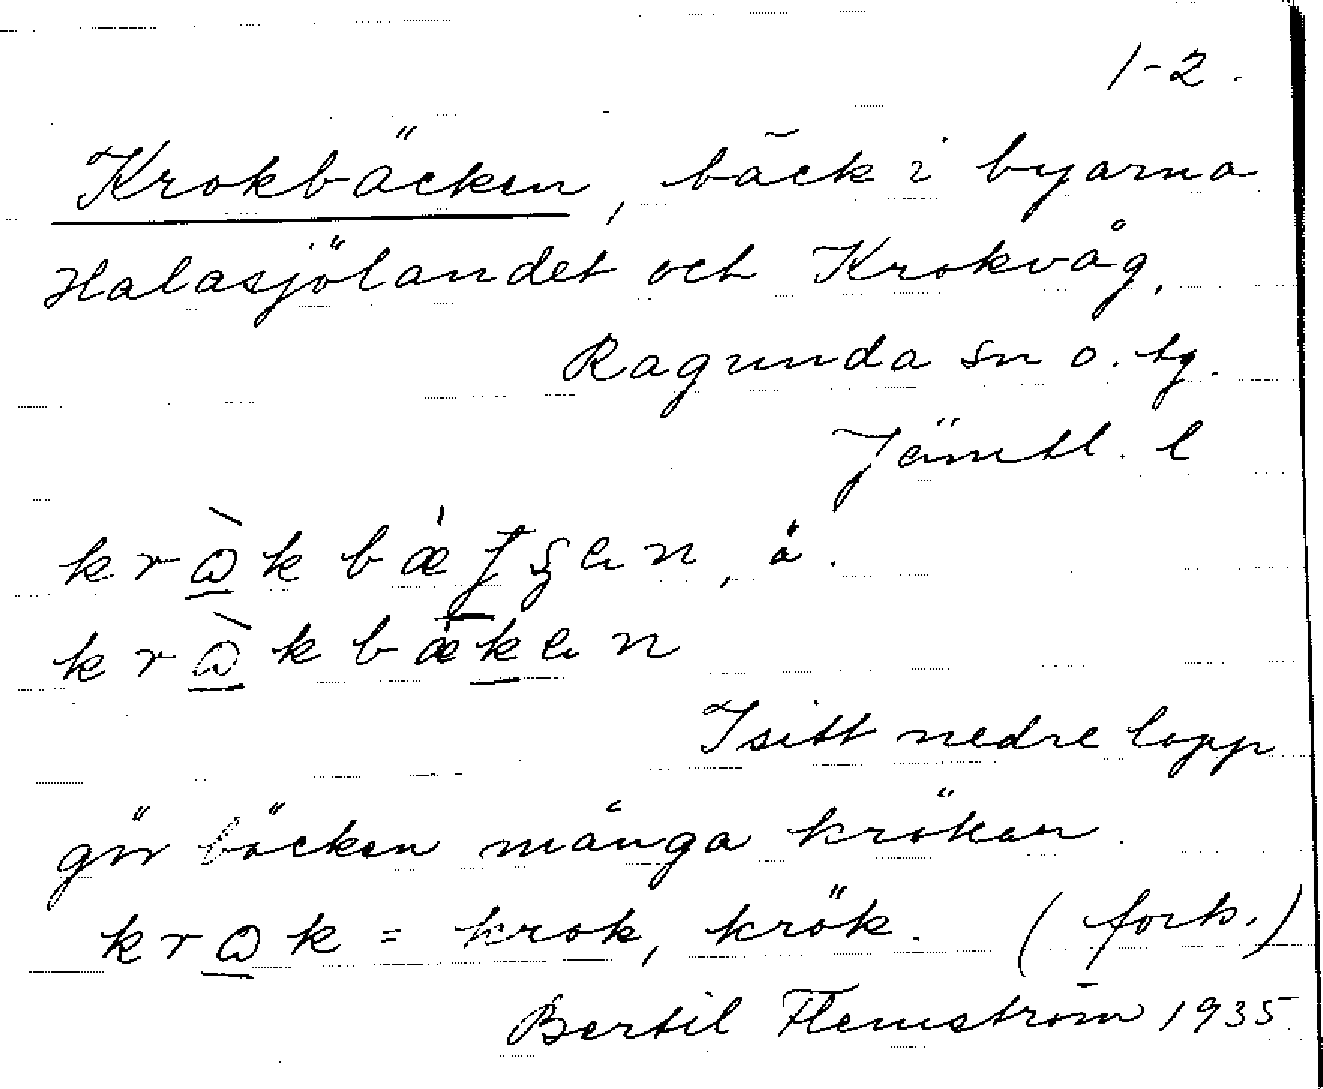 1-2.
Krokbäcken, bäck i byarna
Halasjölandet och Krokvåg,
Ragunda sn o. tg.
Jämtl. l
I sitt nedre lopp
gör bäcken många krökar.
= krok, krök. (forts.)
Bertil Flemström 1935